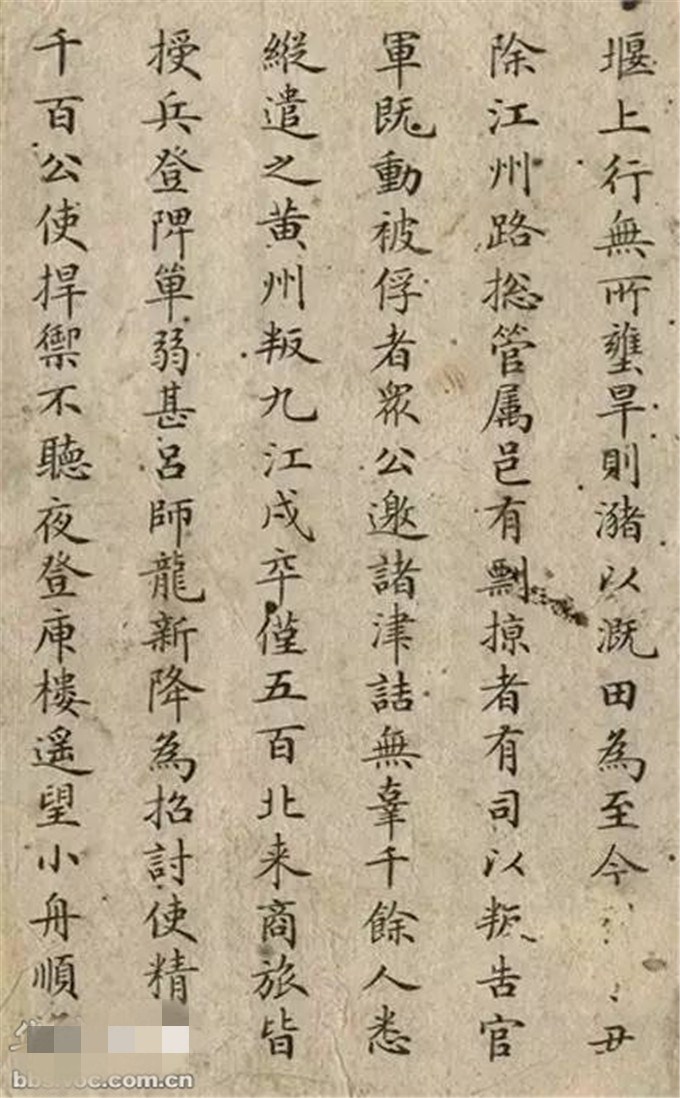 堰上行無所壅旱則瀦以溉田為至今丑
除江州路捴管属邑有剽掠者有司以叛告官
軍既動被俘者眾公邀諸津詰無辜千餘人悉
縱遣之黄州叛九江戍卒僅五百北来商旅皆
授兵登陴單弱甚吕師龍新降為招討使精
千百公使捍禦不聽夜登庾樓遥望小舟順
bbs.voc.com.cn